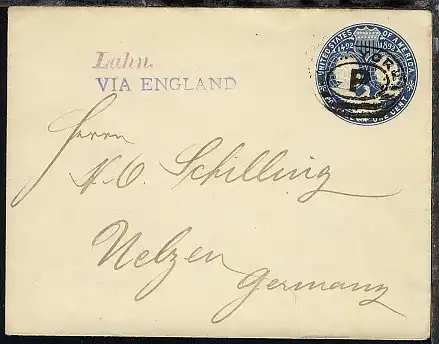 UNITED STATES OF AMERICA
1492 1892
ONE CENT
Lahn.
VIA ENGLAND
Herrn
H. C. Schilling
Uelzen
Germany